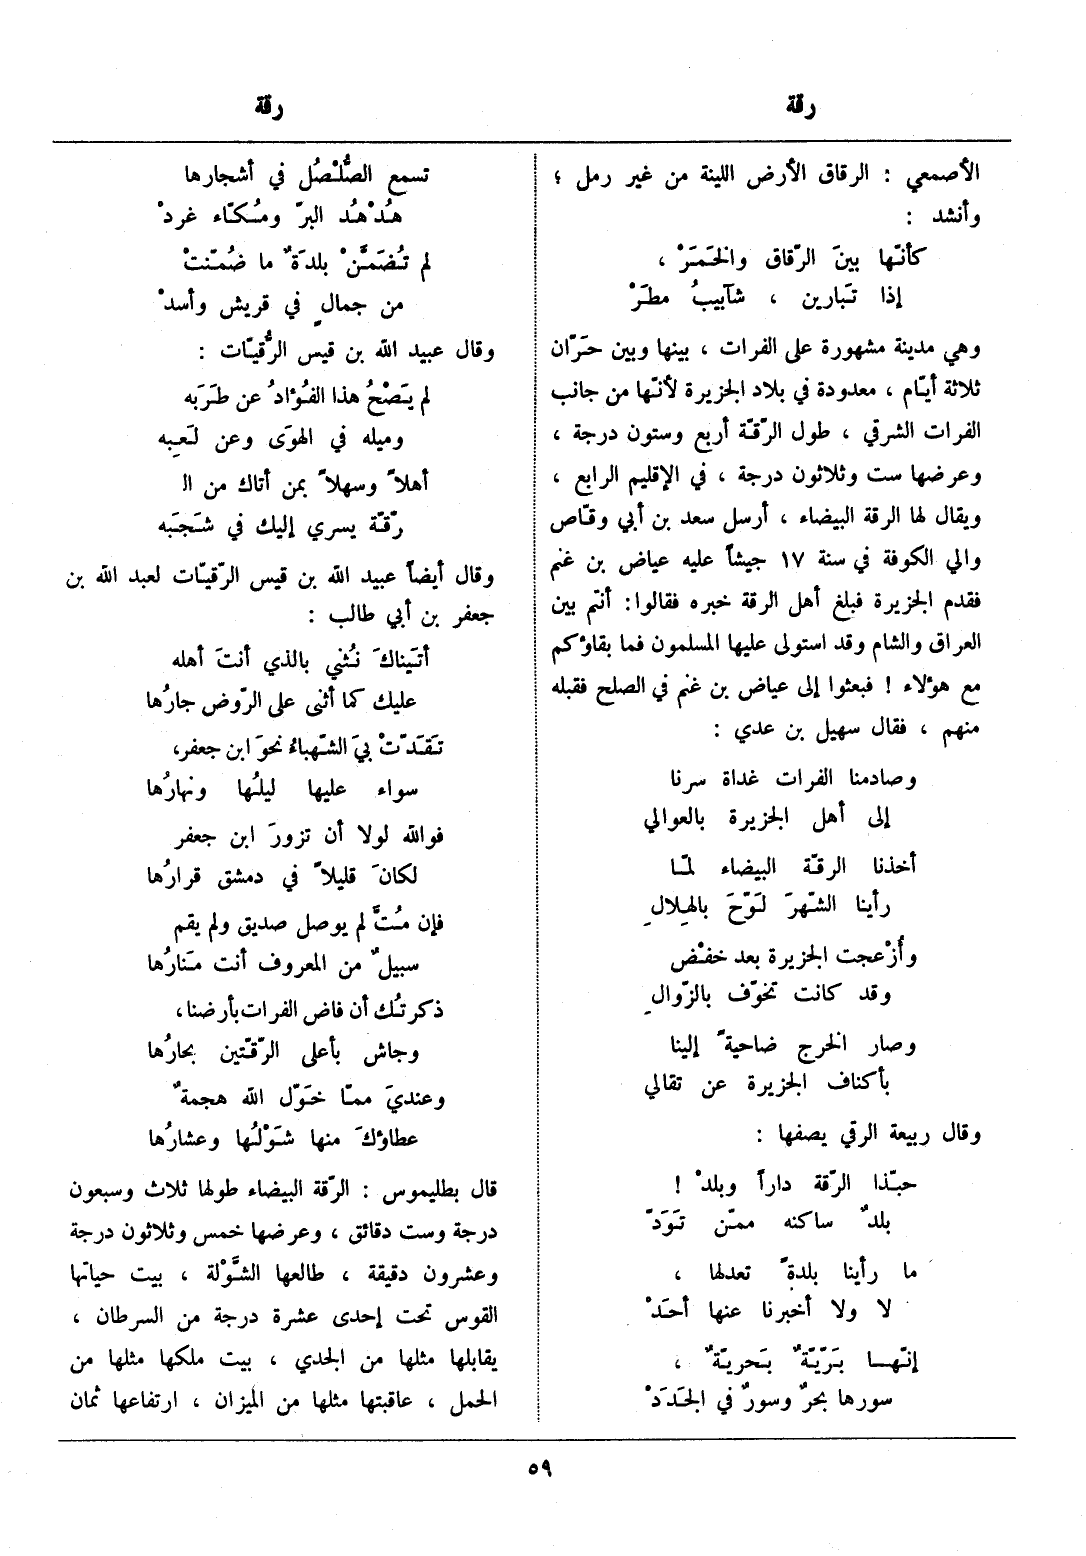 رقة
رقة
الأصمعي : الرقاق الأرض اللينة من غير رمل ؛
وأنشد :
كأنّها بينَ الرّقاق والخَمَرْ ،
إذا تَبارين ، شآبيبُ مطَرْ
وهي مدينة مشهورة على الفرات ، بينها وبين حَرّان
ثلاثة أيّام ، معدودة في بلاد الجزيرة لأنّها من جانب
الفرات الشرقي ، طول الرّقّة أربع وستون درجة ،
وعرضها ست وثلاثون درجة ، في الإقليم الرابع ،
ويقال لها الرقة البيضاء ، أرسل سعد بن أبي وقّاص
والي الكوفة في سنة ١٧ جيشاً عليه عياض بن غنم
فقدم الجزيرة فبلغ أهل الرقة خبره فقالوا: أنتم بين
العراق والشام وقد استولى عليها المسلمون فما بقاؤكم
مع هؤلاء ! فبعثوا إلى عياض بن غنم في الصلح فقبله
منهم ، فقال سهيل بن عدي :
وصادمنا الفرات غداة سرنا
إلى أهل الجزيرة بالعوالي
أخذنا الرقّة البيضاء لمّا
رأينا الشّهرَ لَوّحَ بالهلالِ
وأُزْعجت الجزيرة بعد خفْض
وقد كانت تخوّف بالزّوالِ
وصار الخرج ضاحيةً إلينا
بأكناف الجزيرة عن تقالي
وقال ربيعة الرقي يصفها :
حبّذا الرّقة داراً وبلدْ !
بلدٌ ساكنه ممّن تَوَدّ
ما رأينا بلدةً تعدلها ،
لا ولا أخبرنا عنها أحَدْ
إنّهـا بَرّيّةٌ بَحريّةٌ ،
سورها بحرٌ وسورٌ في الجَدَدْ
تسمع الصُّلْصُل في أشجارها
هُدْهُد البرّ ومُكّاء غردْ
لم تُضَمَّنْ بلدَةٌ ما ضُمّنتْ
من جمالٍ في قريش وأسدْ
وقال عبيد الله بن قيس الرُّقيّات :
لم يَصْحُ هذا الفُؤادُ عن طرَبه
وميله في الهوَى وعن لَعِبه
أهلاً وسهلاً بمن أتاك من الـ
رّقّة يسري إليك في شجَبه
وقال أيضاً عبيد الله بن قيس الرّقيّات لعبد الله بن
جعفر بن أبي طالب :
أتَيناكَ نُثني بالذي أنتَ أهله
عليك كما أثنى على الرّوض جارُها
تقَدّتْ بيَ الشّهباءُ نحوَ ابن جعفر،
سواء عليها ليلُها ونهارُها
فوالله لولا أن تزورَ ابن جعفر
لكانَ قليلاً في دمشق قرارُها
فإن مُتَّ لم يوصل صديق ولم يقم
سبيلٌ من المعروف أنت مَنارُها
ذكرتُك أن فاض الفرات بأرضنا،
وجاش بأعلى الرّقّتين بحارُها
وعنديَ ممّا خَوّل الله هجمةٌ
عطاؤكَ منها شَوْلُها وعشارُها
قال بطليموس : الرّقة البيضاء طولها ثلاث وسبعون
درجة وست دقائق ، وعرضها خمس وثلاثون درجة
وعشرون دقيقة ، طالعها الشَّوْلة ، بيت حياتها
القوس تحت إحدى عشرة درجة من السرطان ،
يقابلها مثلها من الجدي ، بيت ملكها مثلها من
الحمل ، عاقبتها مثلها من الميزان ، ارتفاعها ثمان
٥٩